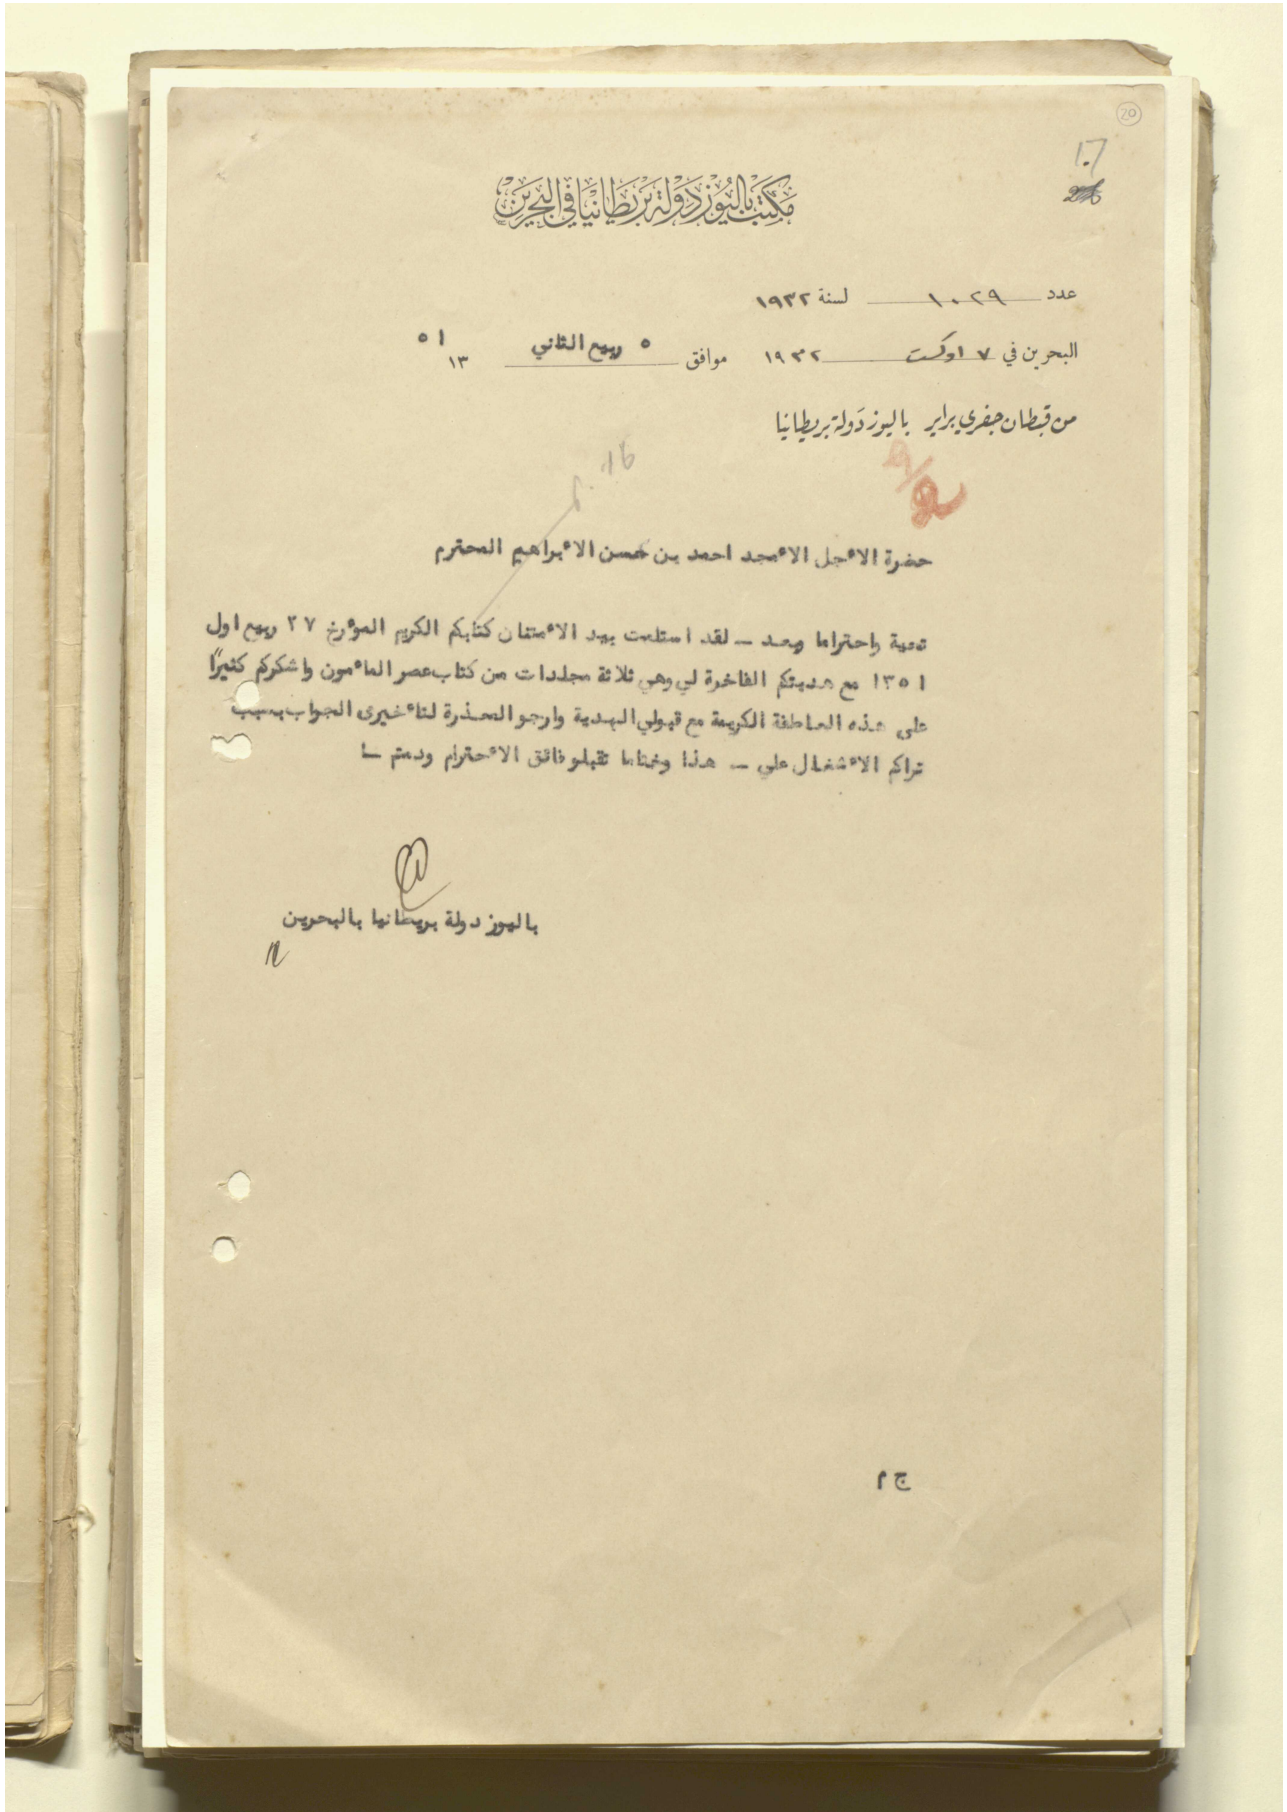 20
17
مكتب باليوز دولة بريطانيا في البحرين
عدد ١٠٢٩ لسنة ١٩٣٢
البحرين في ٧ اوكست ١٩٣٢ موافق ٥ ربيع الثاني ١٣٥١
من قبطان جفري براير باليوز دَولة بريطانيا
p. 16
حضرة الاءجل الاءمجد احمد بن حسن الاءبراهيم المحترم
تحية واحتراما وبعد ــ لقد استلمت بيد الاءمتنان كتابكم الكريم المؤرخ ٢٧ ربيع اول
١٣٥١ مع هديتكم الفاخرة لي وهي ثلاثة مجلدات من كتاب عصر الماءمون واشكركم كثيرًا
على هذه العاطفة الكريمة مع قبولي الهدية وارجو المعذرة لتاءخيرى الجواب بسبب
تراكم الاءشغال علي ــ هذا وختاما تقبلو فائق الاءحترام ودمتم ــا
باليوز دولة بريطانيا بالبحرين
ج م